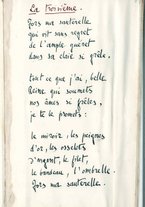 La Troisième.
Fors ma sauterelle
qui vit sans regret
de l'ample guéret
dans sa claie si grêle,
tout ce que j'ai, belle
Reine qui soumets
nos âmes si frêles,
je te le promets:
le miroir, les peignes
d'or, les osselets
d'argent, le filet,
le bandeau, l'ombrelle.
Fors ma sauterelle.